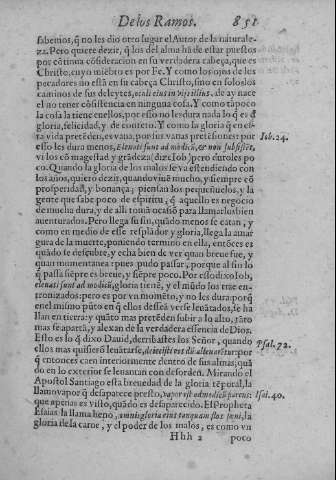 De los Ramos. 851
sabemos, q̃ no les dio otro lugar el Autor de la naturale-
za. Pero quiere dezir, q̃ los del alma hã de estar puestos
por cõtinua cõsideracion en su verdadera cabeça, que es
Christo, cuyo miẽbro es por Fe. Y como los ojos de los
pecadores no estã en su cabeça Christo, sino en solos los
caminos de sus deleytes,
el no tener cõsistencia en ninguna cosa. Y como tãpoco
la cosa la tiene en ellos, por esso no les dura nada lo q̃ es
gloria, felicidad, y de contẽto. Y como la gloria q̃ en es-
ta vida pretẽdẽ, es vana, por sus vanas pretẽsiones: por Iob. 24.
esso les dura menos, Eleuati sunt ad modicũ, & non subsistẽt,
vi los cõ magestad y grãdeza (dize Iob) pero duroles po
co. Quando la gloria de los malos se va estendiendo con
los años, quiero dezir, quando viuẽ mucho, y siempre cõ
prosperidad, y bonança; piensan los pequeñuelos, y la
gente que sabe poco de espiritu, q̃ aquello es negocio
de mucha dura, y de alli tomã ocasiõ para llamarlos bien
auenturados. Pero llega su fin, quãdo menos se catan, y
como en medio de esse resplãdor y gloria, llega la amar
gura de la muerte, poniendo termino en ella, entõces es
quãdo se descubre, y echa bien de ver quan breue fue, y
quan momentanea: pues pudo passar, porque al fin lo
q̃ passa siẽpre es breue, y siẽpre poco. Por esto dixo Iob,
eleuati sunt ad modicũ, gloria tienẽ, y el mũdo los trae en-
tronizados: pero es por vn momẽto, y no les dura: porq̃
en el mismo pũto en q̃ ellos desseã verse leuãtados, se ha
llan en tierra: y quãto mas pretẽden subir a lo alto, tãto
mas se apartã, y alexan de la verdadera essencia de Dios.
Esto es lo q̃ dixo Dauid, derribastes los Señor, quando
ellos mas quisierõ leuãtarse, deiecisti eos dũ alleuarẽtur: por Psal. 72.
q̃ entonces caen interiormente dentro de sus almas, quã
do en lo exterior se leuantan con desorden. Mirando el
Apostol Santiago esta breuedad de la gloria tẽporal, la
llamo vapor q̃ desaparece presto, vapor est ad modicũ parens: Isai. 40.
que apenas es visto, quãdo es desaparecido. El Propheta
Esaias la llama heno, omnis gloria eius tanquam flos fœni, la
gloria de la carne, y el poder de los malos, es como vn
Hhh 2 poco